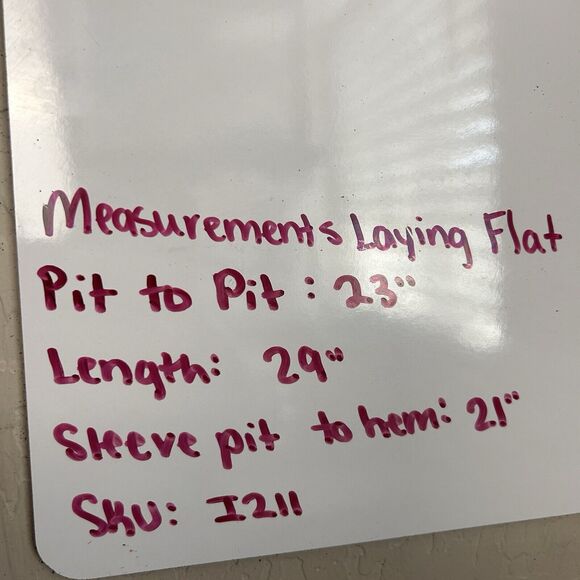 Measurements Laying Flat
Pit to Pit : 23"
Length: 29"
Sleeve pit to hem: 21"
SKU: I211